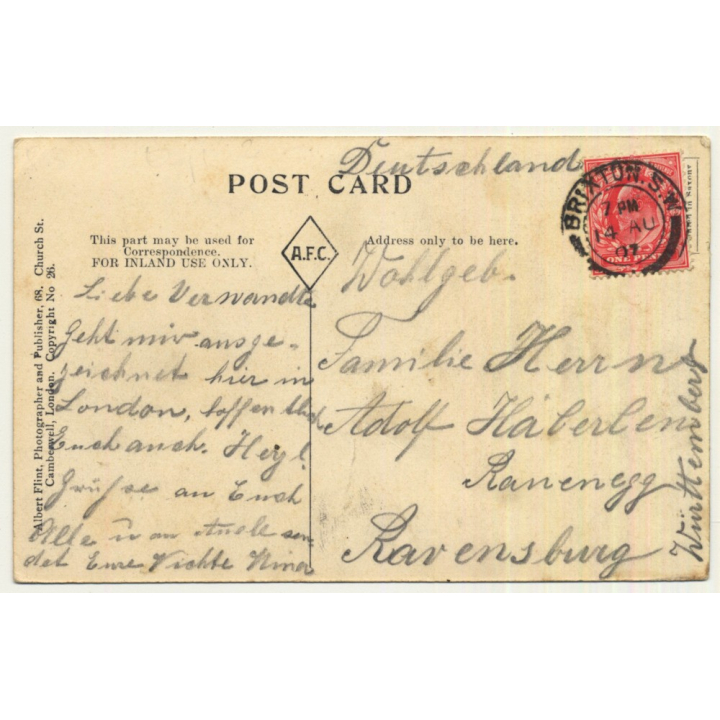 Deutschland
POST CARD
BRIXTON. S.W.
7 PM
14 AU
07
ONE PENNY
This part may be used for
Correspondence.
FOR INLAND USE ONLY.
A.F.C.
Address only to be here.
Liebe Verwandte
Geht mir ausge-
zeichnet hier in
London, hoffentlich
Euch auch. Herzl.
Grüsse an Euch
Alle u an sen
det Eure Nichte Nina
Wohlgeb.
Familie Herrn
Adolf Häberlen
Ravensburg
Württemberg
Albert Flint, Photographer and Publisher, 68, Church St.
Camberwell, London. Copyright No 26.